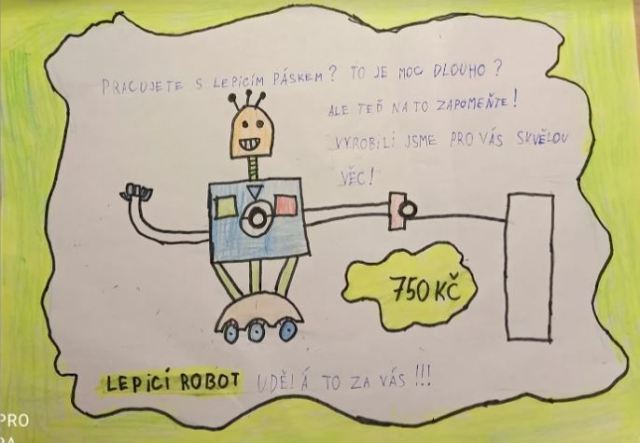 PRACUJETE S LEPICÍM PÁSKEM? TO JE MOC DLOUHO?
ALE TEĎ NA TO ZAPOMEŇTE!
VYROBILI JSME PRO VÁS SKVĚLOU
VĚC!
750 KČ
LEPICÍ ROBOT UDĚLÁ TO ZA VÁS!!!
PRO